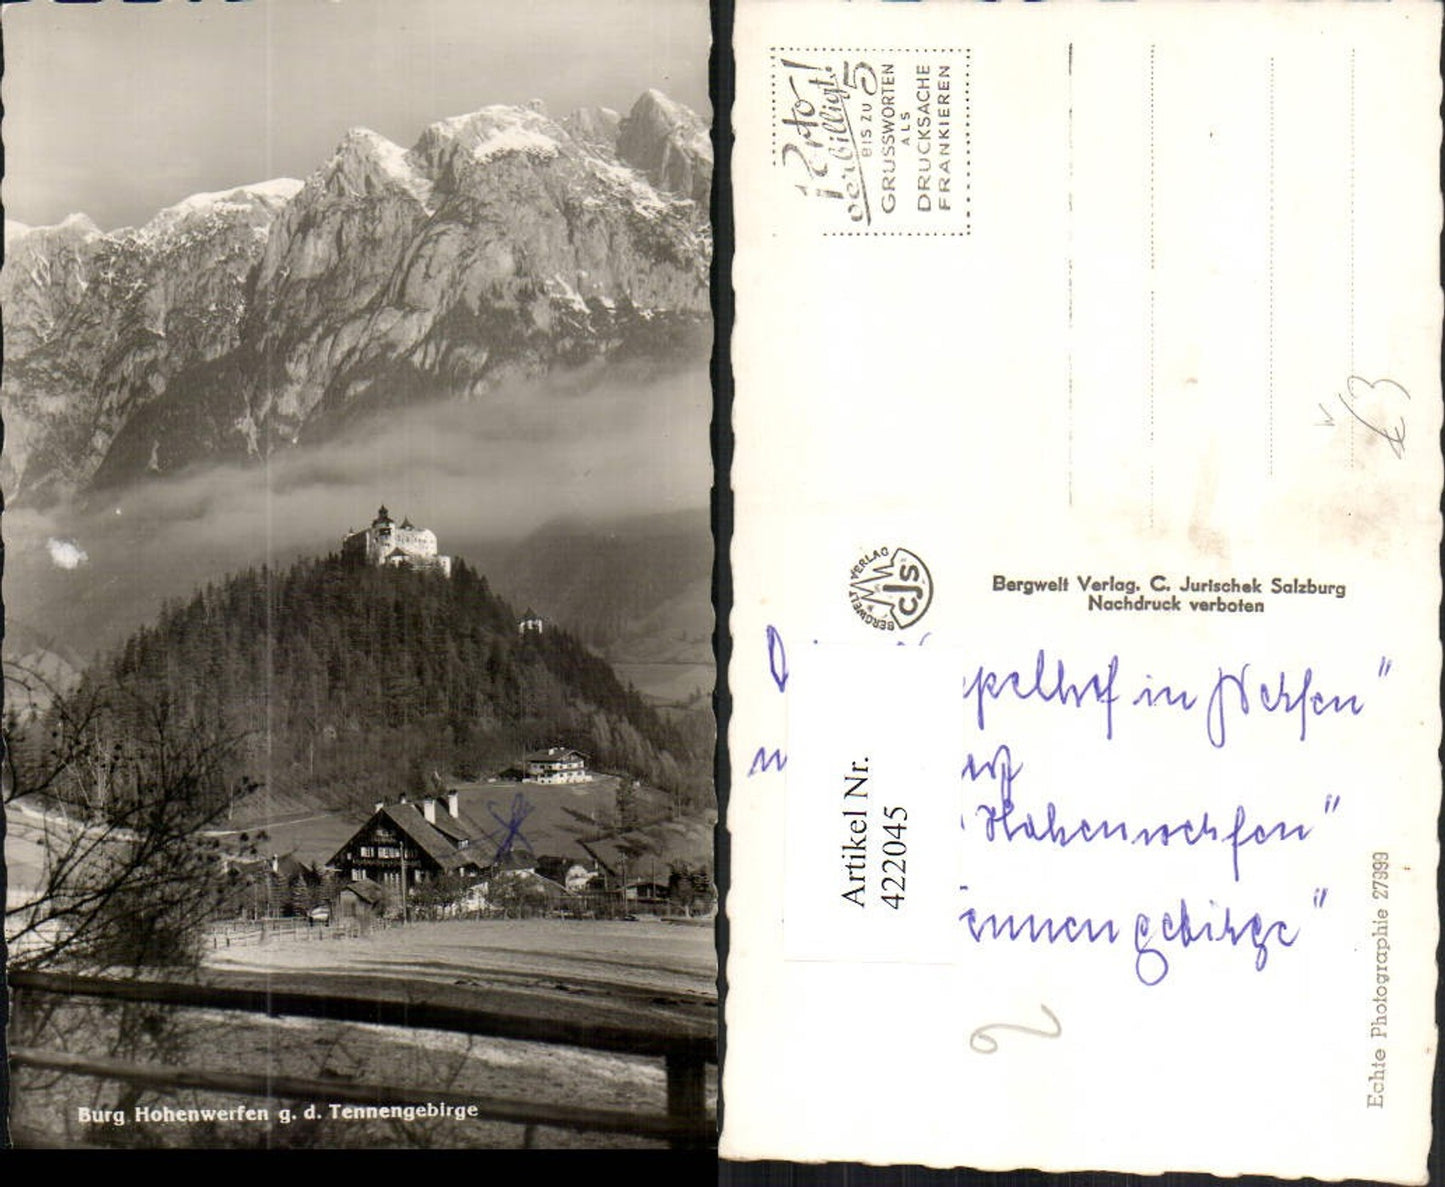 Burg Hohenwerfen g. d. Tennengebirge
Porto
verbilligt!
BIS ZU 5
GRUSSWORTEN
ALS
DRUCKSACHE
FRANKIEREN
BERGWELT VERLAG
CJS
Bergwelt Verlag, C. Jurischek Salzburg
Nachdruck verboten
pelhof in Werfen"
Hohenwerfen"
ennengebirge"
Artikel Nr.
422045
Echte Photographie 27399
W